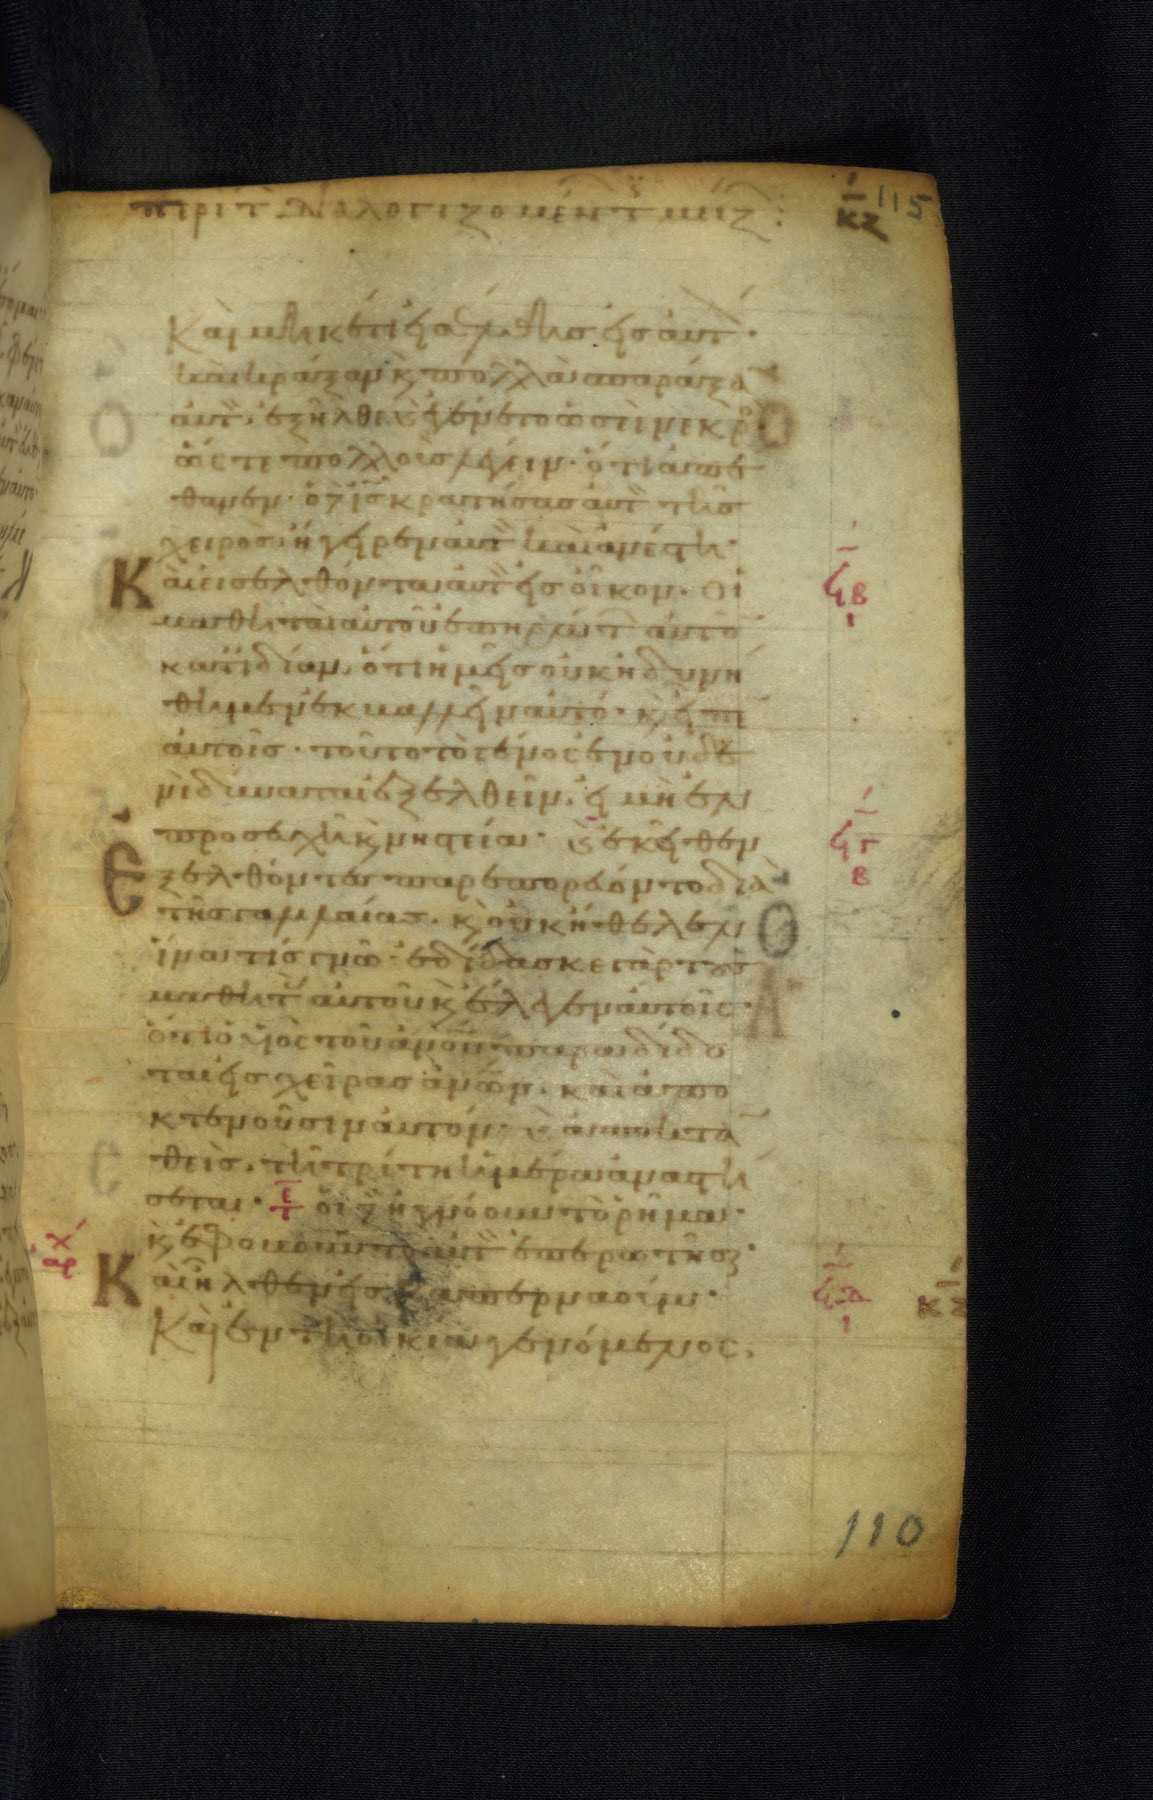 περὶ τ διαλογιζομέν τ μείζ : κζ 115
Καὶ μηκέτι εἰσέλθης εἰς αὐτ ·
καὶ κράξαν κ πολλὰ σπαράξα
αὐτ . ἐξῆλθεν κ ἐγένετο ὡσεὶ νεκρ
ὥστε πολλοὺς λέγειν · ὅτι ἀπέ
θανεν · ὁ δὲ ις κρατήσας αὐτ τῆς
χειρὸς ἤγειρεν αὐτ καὶ ἀνέστη ·
Καὶ εἰσελθόντα αὐτ εἰς οἶκον · Οἱ
μαθηταὶ αὐτοῦ ἐπηρώτ αὐτὸ
κατϊδίαν . ὅτι ἡμεῖς οὐκ ἠδυνή
θημεν ἐκβαλεῖν αὐτό · κ εἶπ
αὐτοῖς · τοῦτο τὸ γένος ἐν οὐδε
νὶ δύναται ἐξελθεῖν . εἰ μὴ ἐν
προσευχῆ κ νηστεία · κ ἐκεῖθεν
Ἐξελθόντες παρεπορεύοντο διὰ
τῆς γαλιλαίας . κ οὐκ ἤθελεν
ἵνα τίς γνῶ · ἐδίδασκε γὰρ τοὺς
μαθητ αὐτοῦ κ ἔλεγεν αὐτοῖς ·
ὅτι ὁ υἱὸς τοῦ ανου παραδίδο
ται εἰς χεῖρας ανων . καὶ ἀπο
κτενοῦσιν αὐτόν · κ ἀποκταν
θεὶς . τῆ τρίτη ἡμέρα ἀναστή
σεται · οἱ δὲ ἠγνόουν τὸ ρῆμα ·
κ ἐφοβοῦντο αὐτ ἐπερωτῆσ ·
Καὶ ἦλθεν εἰς καπερναούμ ·
Καὶ ἐν τῆ οἰκία γενόμενος .
110